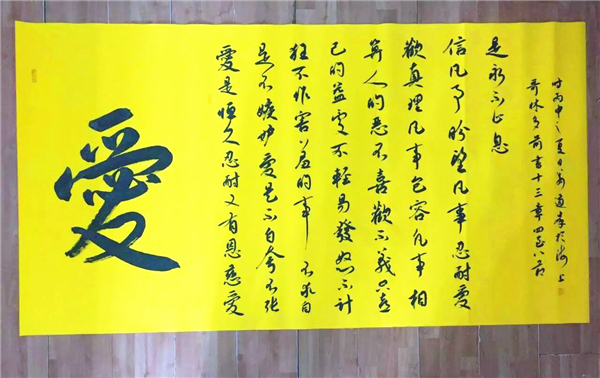 愛
愛是恆久忍耐又有恩慈愛
是不嫉妒愛是不自夸不張
狂不作害羞的事不求自
己的益處不輕易發怒不計
算人的惡不喜歡不義只喜
歡真理凡事包容凡事相
信凡事盼望凡事忍耐愛
是永不止息
哥林多前書十三章四至八節
时丙申之夏日於海上